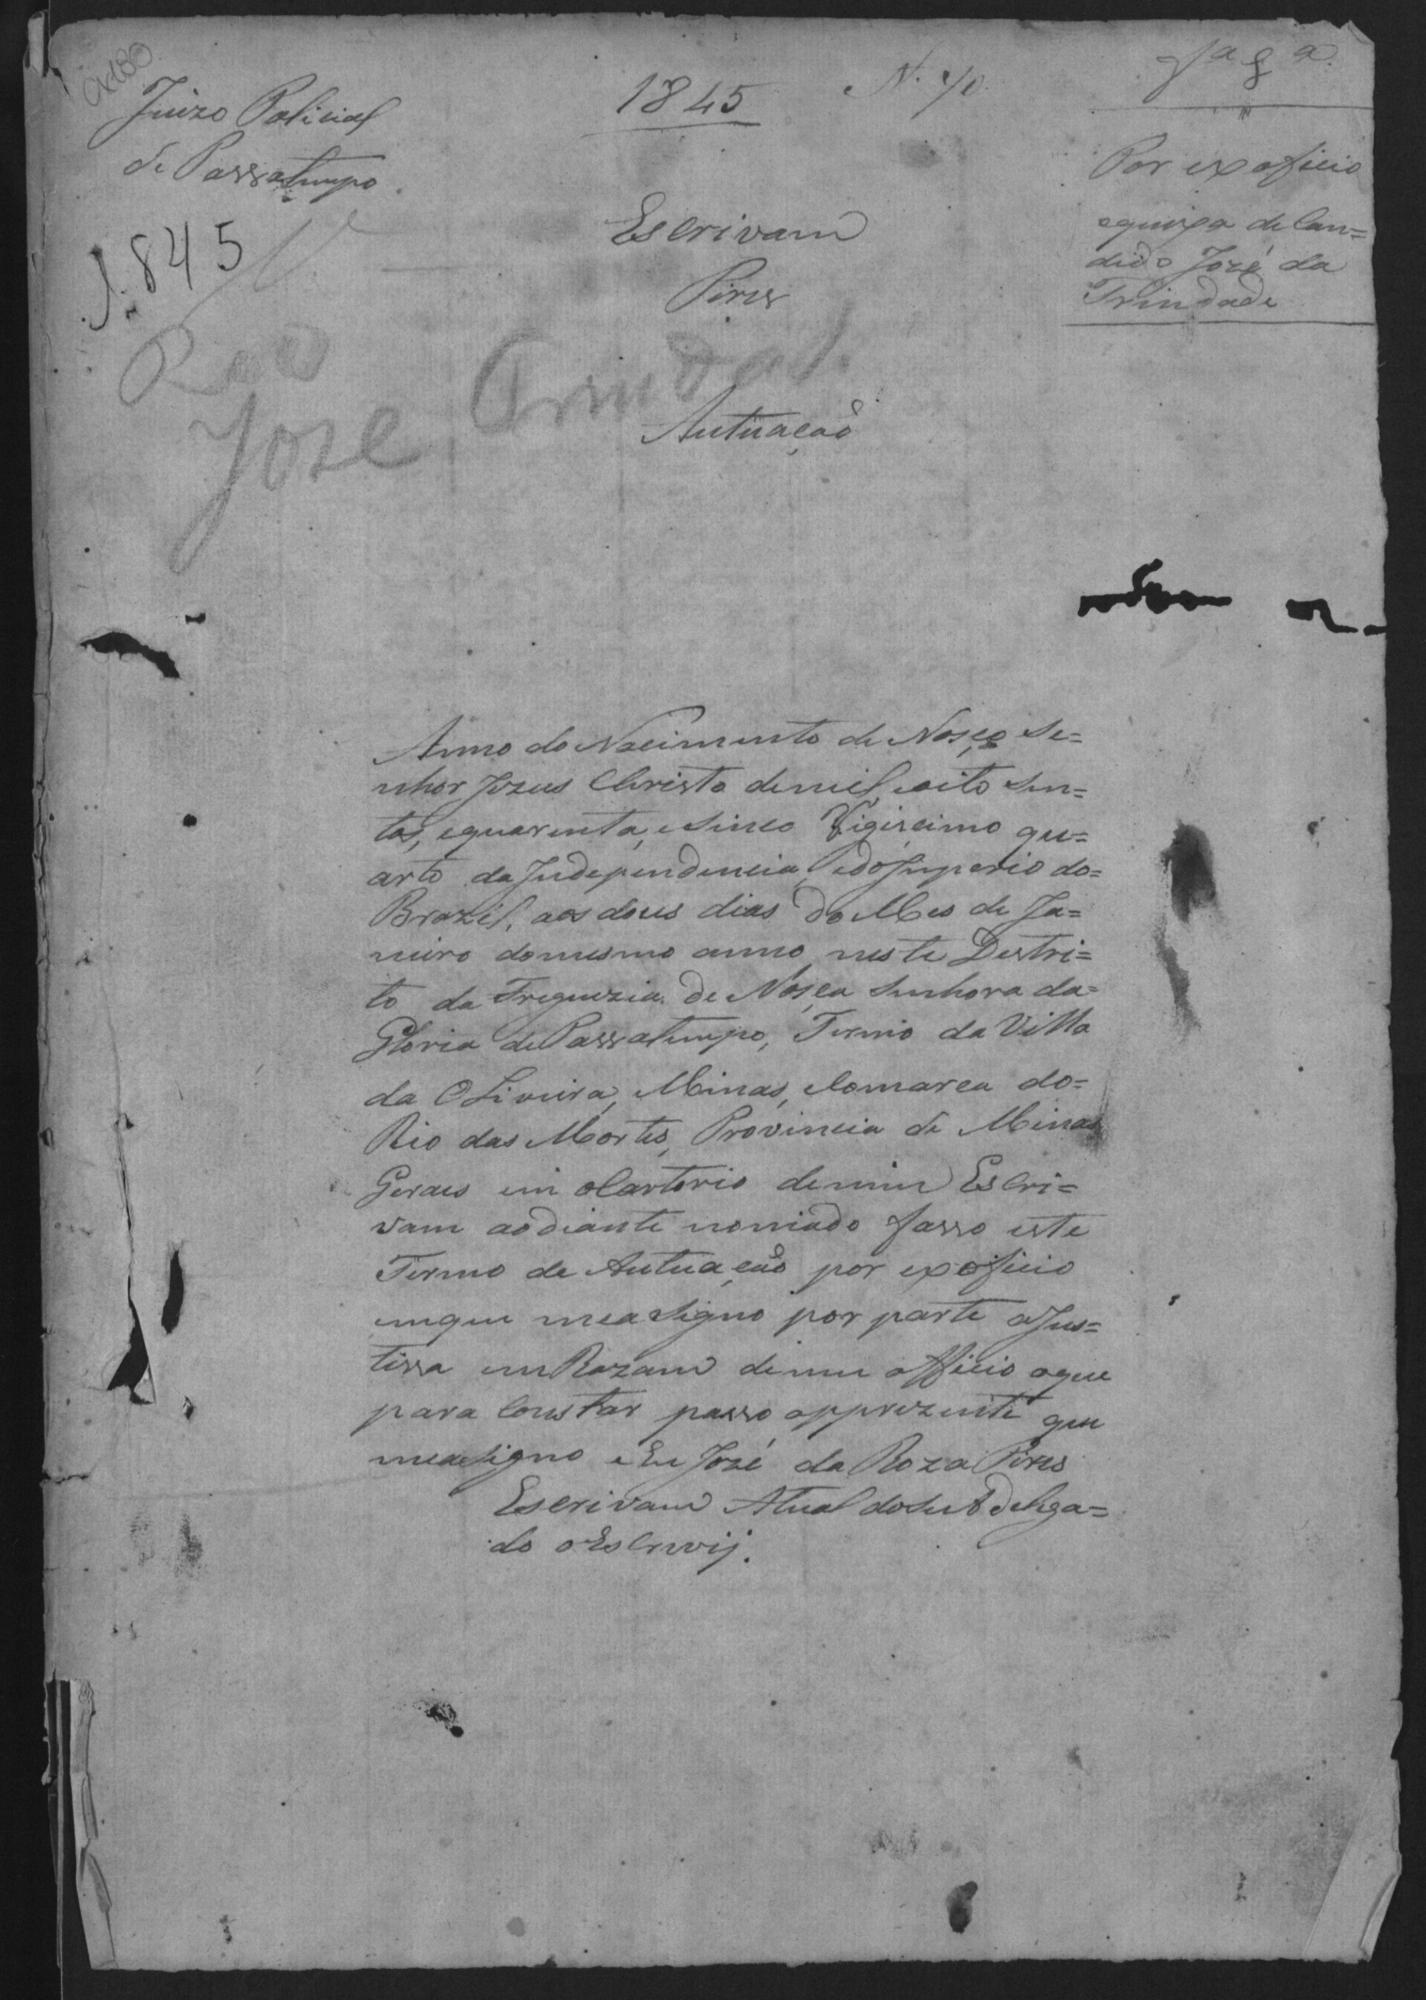 Juizo Policial
de Passatempo
1845
1845
Escrivam
Pires
Autuação
Por ex oficio
equeixa de Can=
dido José da
Trindade
Reo
José
Anno do Nacimento de Nosço Se=
nhor Jozus Christo demil, eoito sen=
tos, equarenta, esinco Vigiscimo qu=
arto da Independencia, edo Imperio do=
Brazil, aos dous dias do Mes de Ja=
neiro domesmo anno neste Destri=
to da Freguezia de Nosça Senhora da=
Gloria de Passatempo, Termo da Villa
da OLiveira, Minas, Comarca do=
Rio das Mortes, Provincia de Minas
Geraes em Cartorio demim Escri=
vam aodiante nomiado fasso este
Termo de Autuação por ex oficio
emque measigno por parte aJus=
tissa em Razam demeu officio oque
para Constar passo opprezente que
measigno e Eu José da Roza Pires
Escrivam Atual do Sub delega=
do o Escrivij.